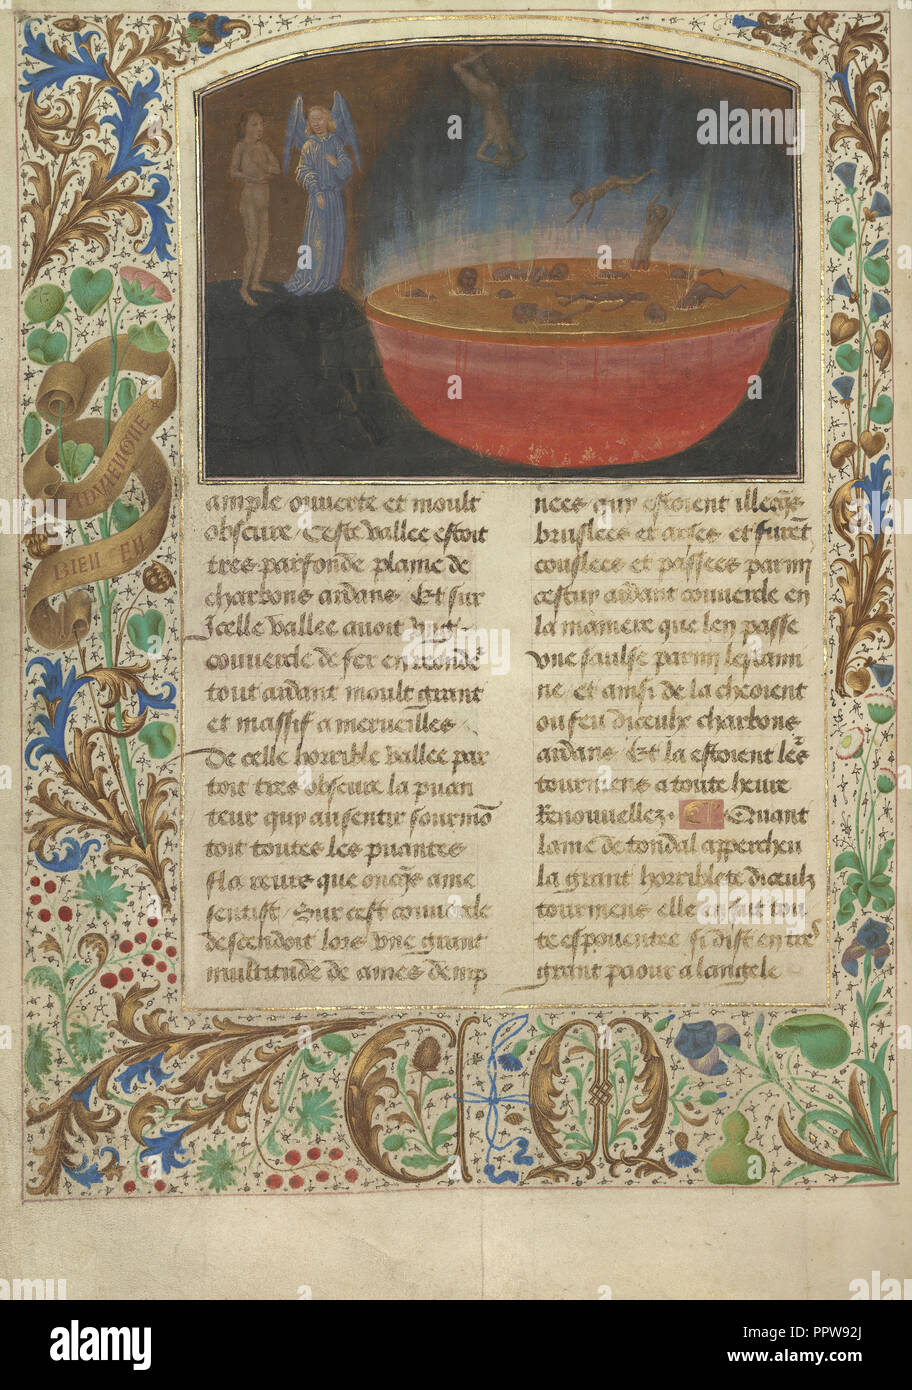 BIEN EN
ADVIENGNE
ample ouverte et moult
obscure / Ceste vallee estoit
tres parfonde plaine de
charbons ardans Et sur
Icelle vallee avoit vng
couvercle de fer en ronde~
tout ardant moult grant
et massif a merveilles
De celle horrible vallee par
toit tres obscure la puan
teur qui au sentir sourmo~
toit toutes les puantes
flareurs que oncq~s ame
sentist / Sur cest couvercle
descendoit lors vne grant
multitude de ames demp
nees quy estoient illecq~s
bruslees et arses et furet~
coulees et passees parmy
cestuy ardant couvercle en
la maniere que len passe
vne saulse parmy lestami
ne et ainsi de la cheoient
ou feu diceulx charbons
ardans Et la estoient les~
tourmens a toute heure
Renouvellez · C Quant
lame de tondal appercheu
la grant horriblete diceulx
tourmens elle en fut tou
te espouentee si dist en tre~s
grant paour a langele
C M
alamy
www.alamy.com
PPW92J